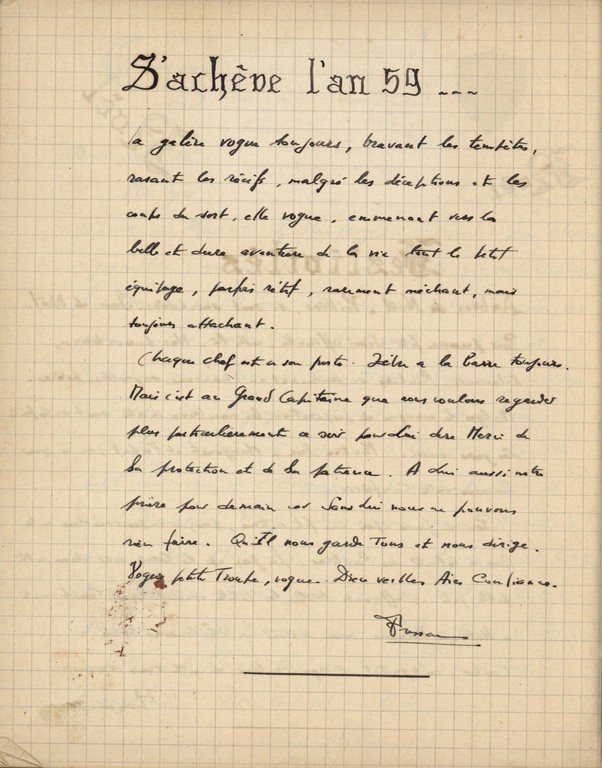 S'achève l'an 59 ...
La galère vogue toujours, bravant les tempêtes,
rasant les récifs, malgré les déceptions et les
coups du sort, elle vogue, emmenant vers la
belle et dure aventure de la vie tout le petit
équipage, parfois rétif, rarement méchant, mais
toujours attachant.
Chaque chef est a son poste. a la barre toujours.
Mais c'est au Grand Capitaine que nous voulons regarder
plus particulièrement ce soir pour lui dire Merci de
Sa protection et de Sa patience. A Lui aussi notre
prière pour demain car Sans Lui nous ne pouvons
rien faire. Qu'Il nous garde Tous et nous dirige.
Vogue petite Troupe, vogue. Dieu veille. Aies Confiance.